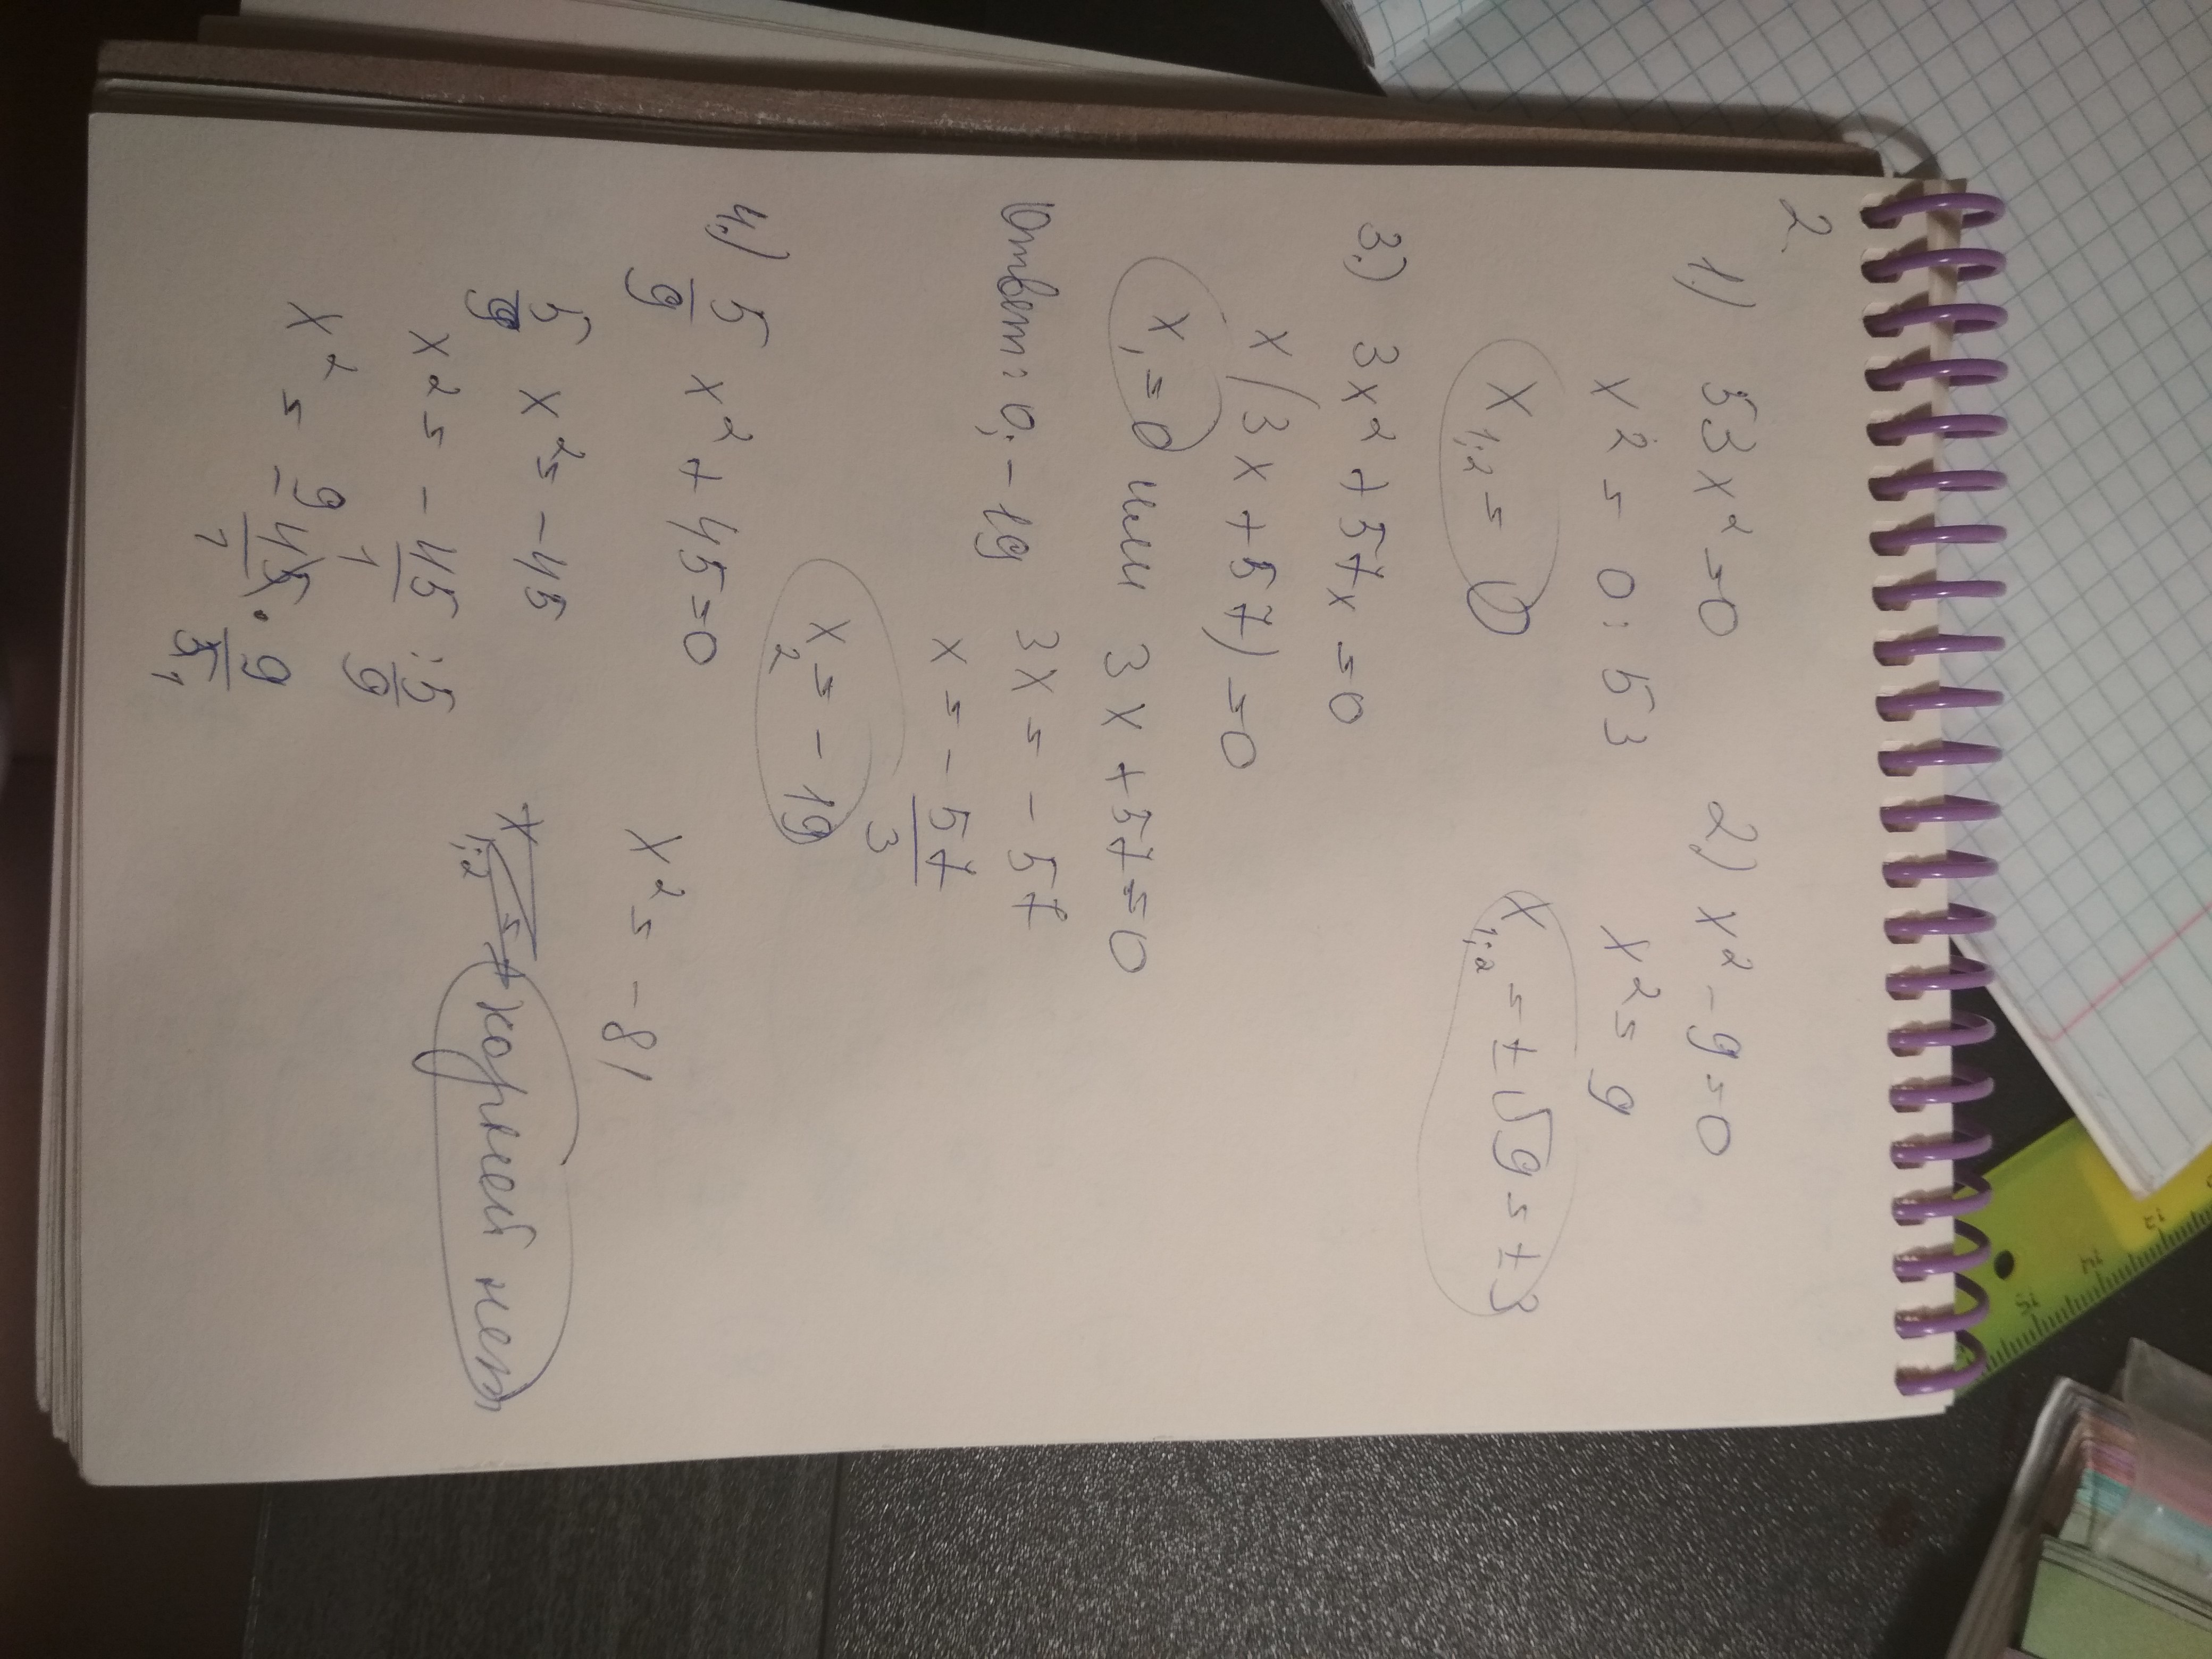 2.
1.) 53x² = 0
x² = 0 : 53
x₁;₂ = 0
2.) x² - 9 = 0
x² = 9
x₁;₂ = ±√9 = ±3
3.) 3x² + 57x = 0
x(3x + 57) = 0
x₁ = 0 или 3x + 57 = 0
3x = - 57
x = - 57/3
x₂ = - 19
Ответ: 0; - 19
4.) 5/9 x² + 45 = 0
5/9 x² = - 45
x² = - 45/1 : 5/9
x² = - 9 45/1 · 9/5 1
x² = - 81
x₁;₂ = ±
корней нет
12
14
15